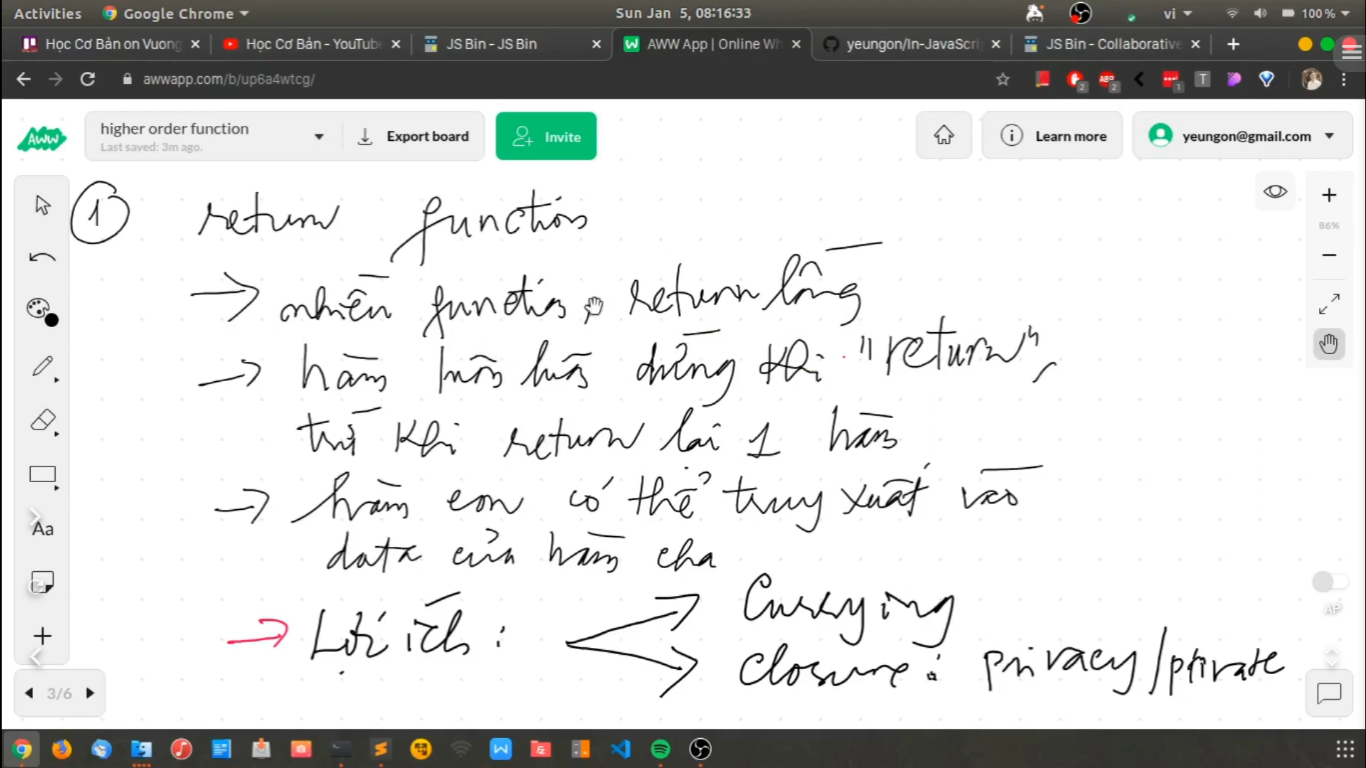 Activities Google Chrome Sun Jan 5, 08:16:33 vi 100 %
Học Cơ Bản on Vuong Học Cơ Bản - YouTube JS Bin - JS Bin AWW App | Online Wh yeungon/In-JavaScri JS Bin - Collaborative
awwapp.com/b/up6a4wtcg/
AWW higher order function Export board Invite Learn more yeungon@gmail.com
Last saved: 3m ago.
① return function
→ nhiều function return lồng
86%
→ hàm luôn luôn dừng khi "return",
trừ khi return lại 1 hàm
→ hàm con có thể truy xuất vào
Aa
data của hàm cha
AP
→ Lợi ích : Currying
closure : privacy/private
3/6